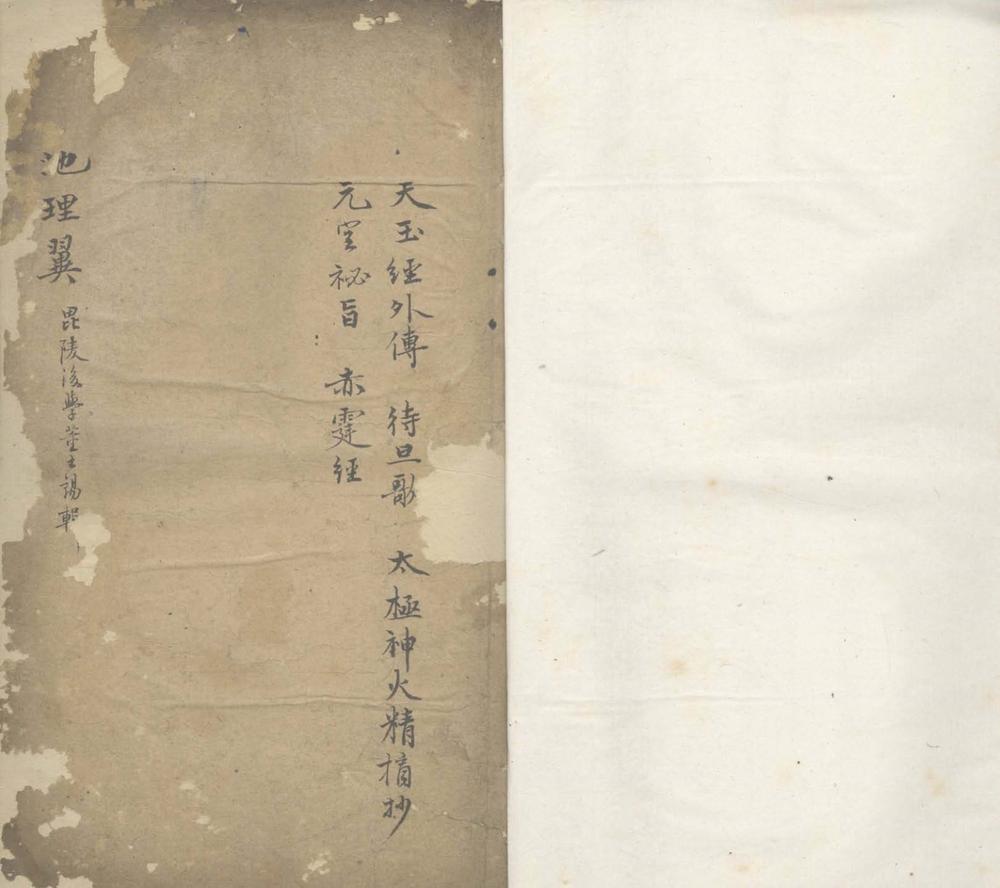 天玉經外傳　待旦歌　太極神火精摘抄
元空祕旨　赤霆經
地理翼　毘陵後學董士錫輯